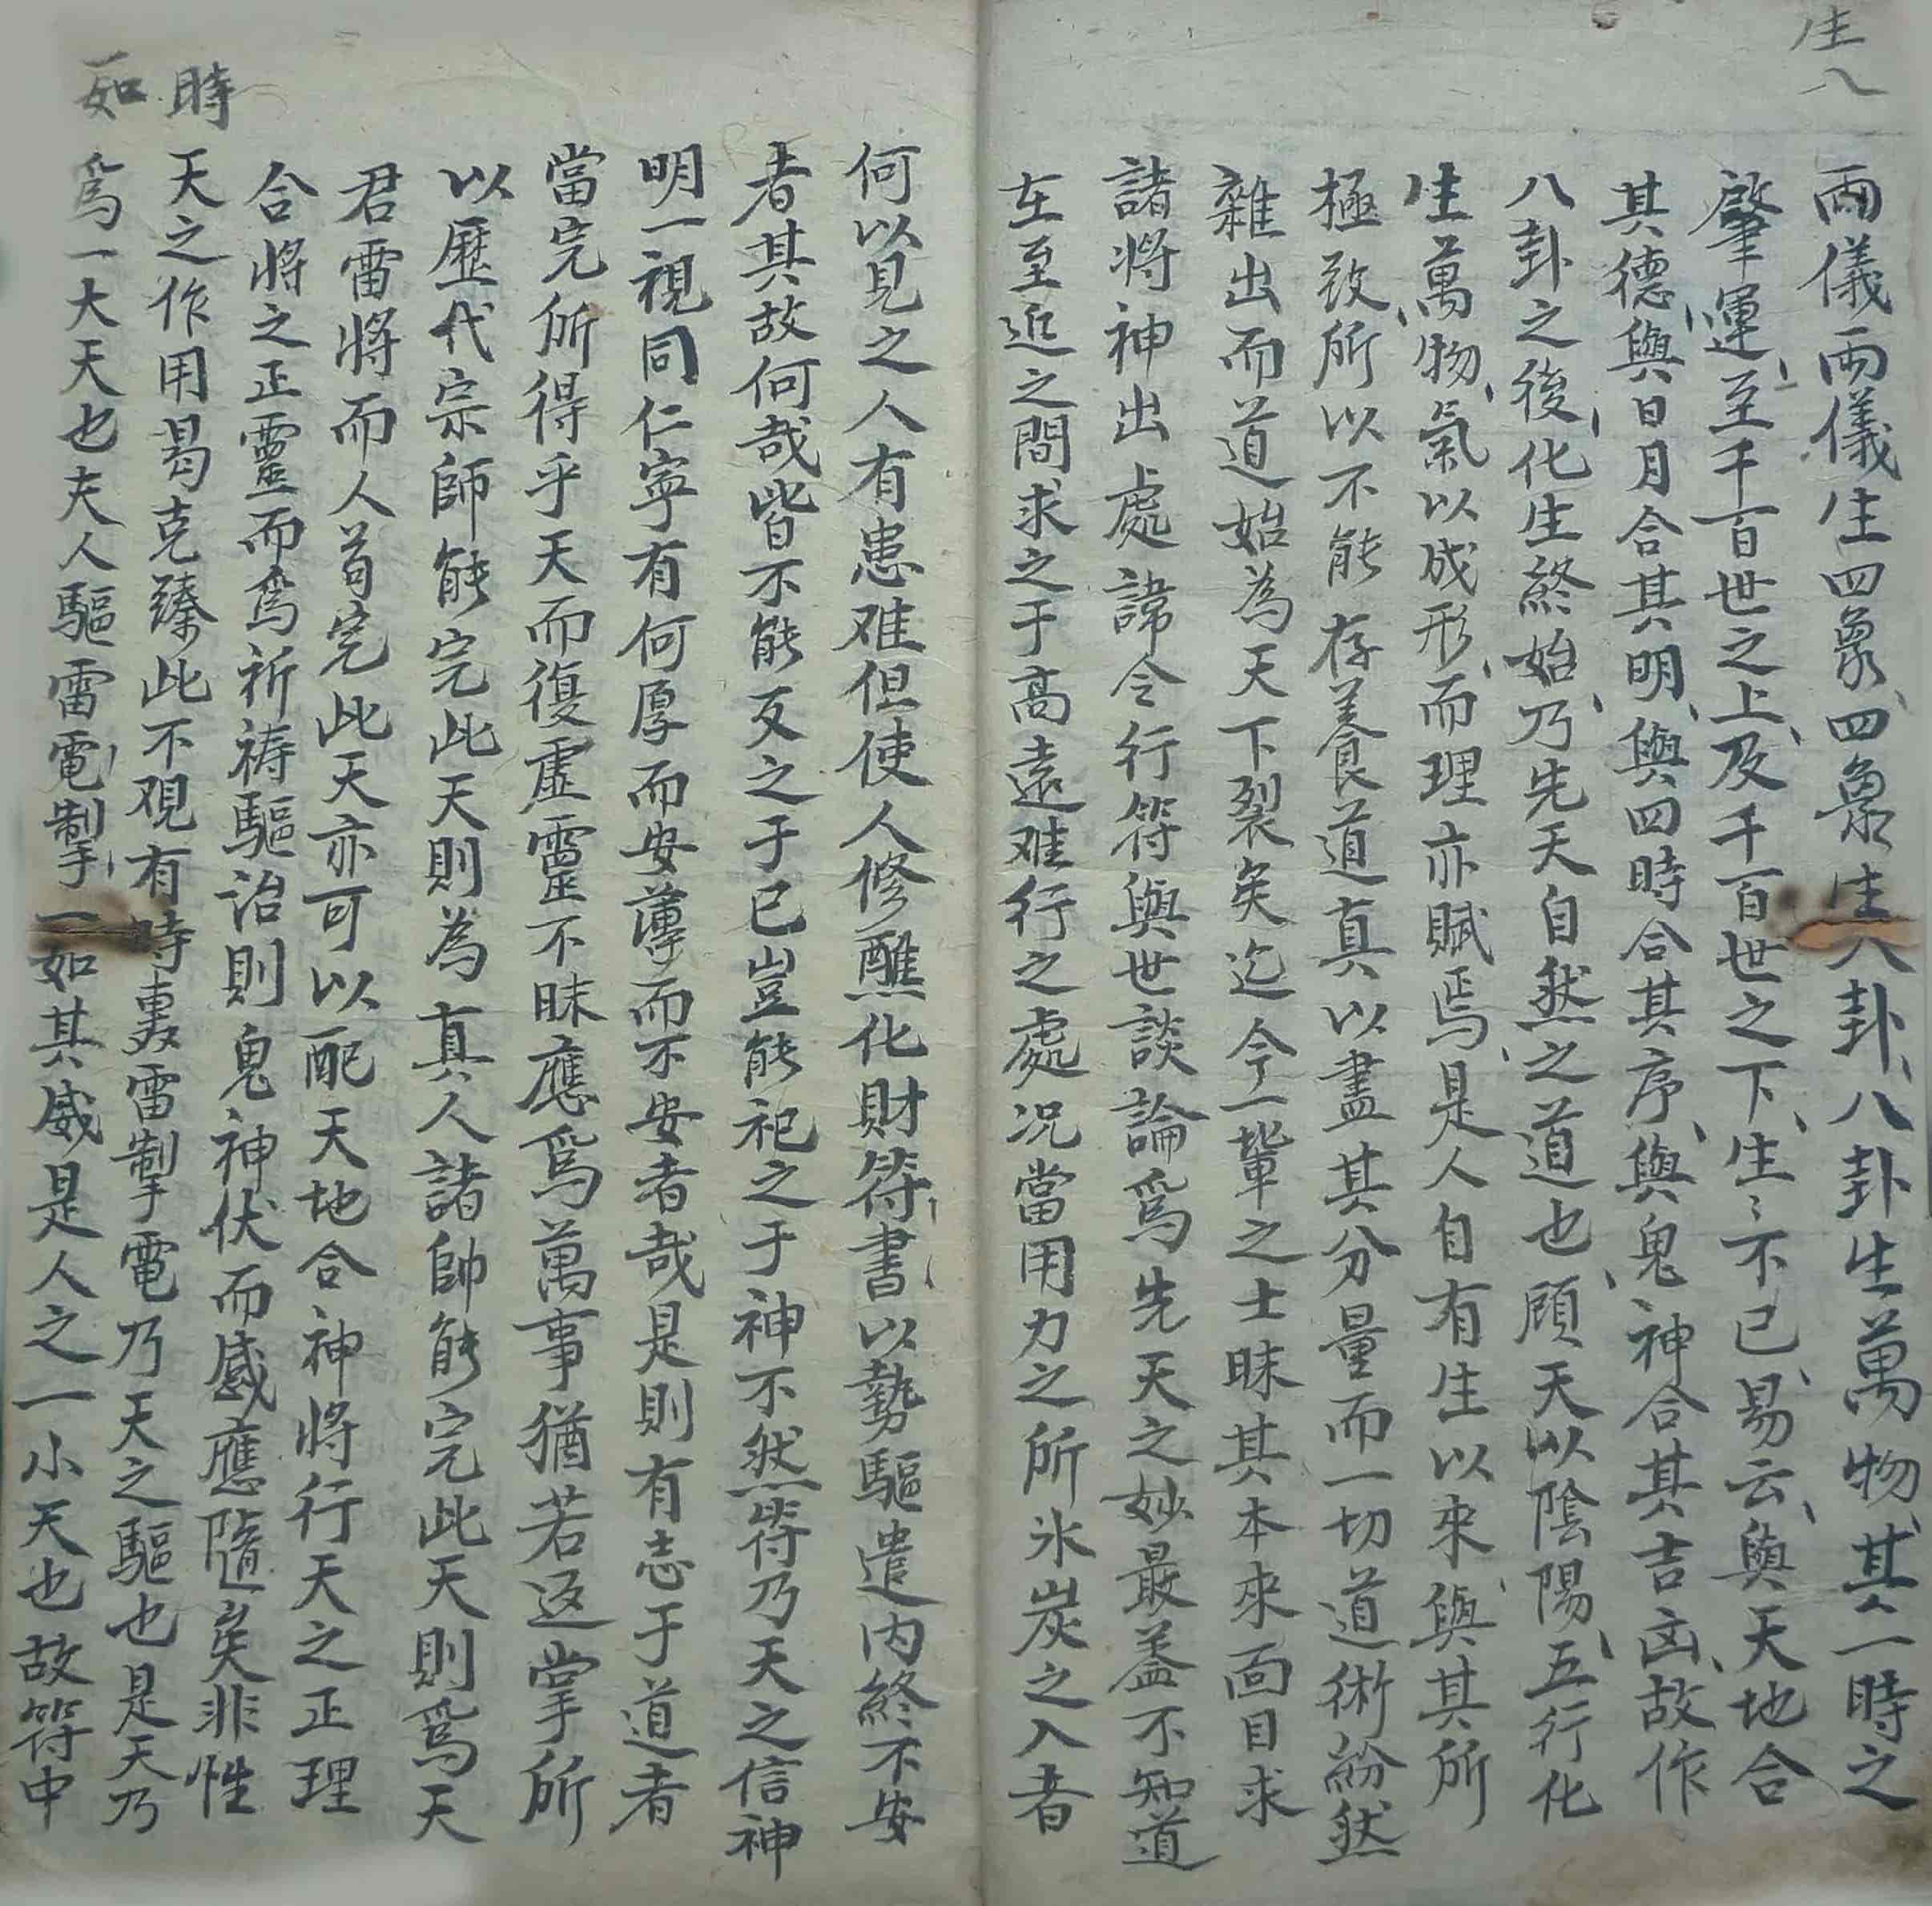 生八
兩儀兩儀生四象四象生八卦八卦生萬物其一時之
肇運至千百世之上及千百世之下生〻不已易云與天地合
其德與日月合其明與四時合其序與鬼神合其吉凶故作
八卦之後化生終始乃先天自然之道也顧天以陰陽五行化
生萬物氣以成形而理亦賦焉是人自有生以來與其所
極致所以不能存養道真以盡其分量而一切道術紛然
雜出而道始為天下裂矣迄今一輩之士昧其本來面目求
諸將神出處諱令行符與世談論爲先天之妙最盖不知道
在至近之間求之于高遠难行之處况當用力之所氷炭之入者
何以見之人有患难但使人修醮化財符書以勢驅遣内終不安
者其故何哉皆不能反之于已豈能祀之于神不然符乃天之信神
明一視同仁寜有何厚而安薄而不安者哉是則有志于道者
當完所得乎天而復虛靈不昧應爲萬事猶若返掌所
以歷代宗師能完此天則為真人諸帥能完此天則爲天
君雷將而人苟完此天亦可以配天地合神將行天之正理
合將之正靈而爲祈祷驅治則鬼神伏而感應隨矣非性
時
天之作用曷克臻此不覌有時轟雷掣電乃天之驅也是天乃
如
爲一大天也夫人驅雷電掣一如其威是人之一小天也故符中